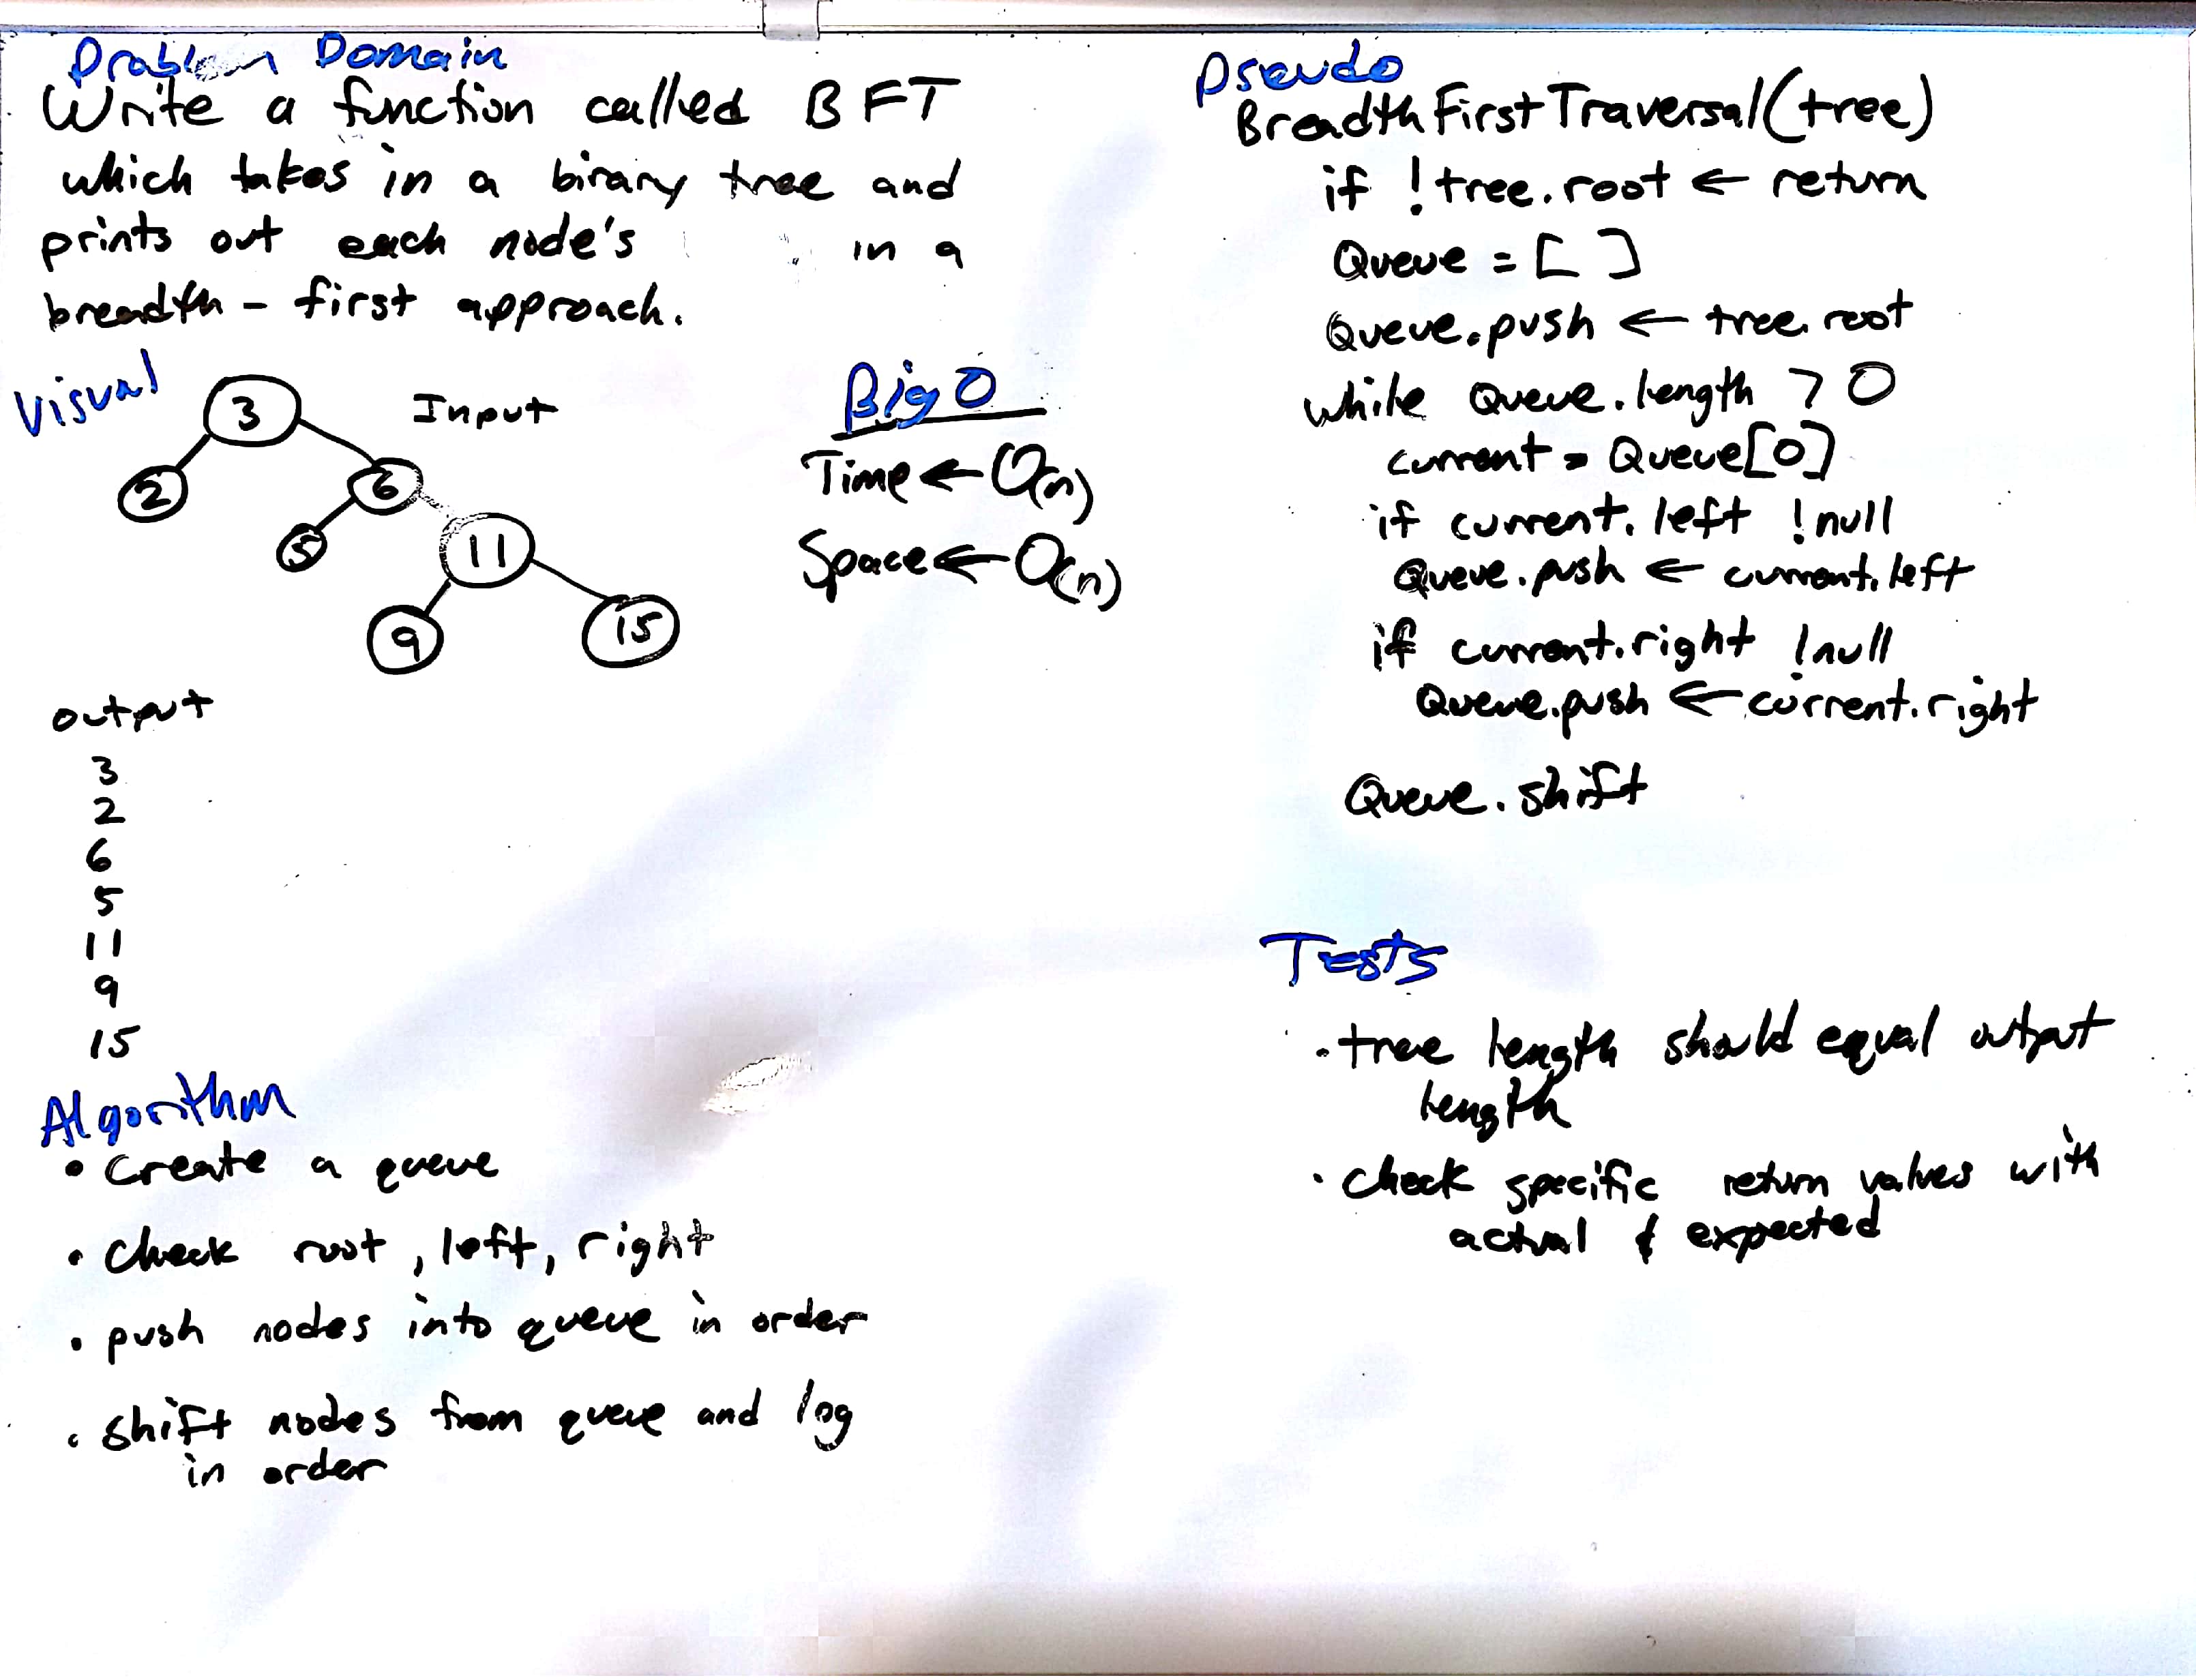 Problem Domain
Write a function called BFT
which takes in a binary tree and
prints out each node's in a
breadth - first approach.
Visual
Input
3
2
6
5
11
9
15
Big O
Time ← O(n)
Space ← O(n)
output
3
2
6
5
11
9
15
Algorithm
• Create a queue
• check root, left, right
• push nodes into queue in order
• shift nodes from queue and log
in order
Pseudo
BreadthFirstTraversal(tree)
if !tree.root ← return
Queue = [ ]
Queue.push ← tree.root
while Queue.length > 0
current = Queue[0]
if current.left !null
Queue.push ← current.left
if current.right !null
Queue.push ← current.right
Queue.shift
Tests
• tree length should equal output
length
• check specific return values with
actual & expected